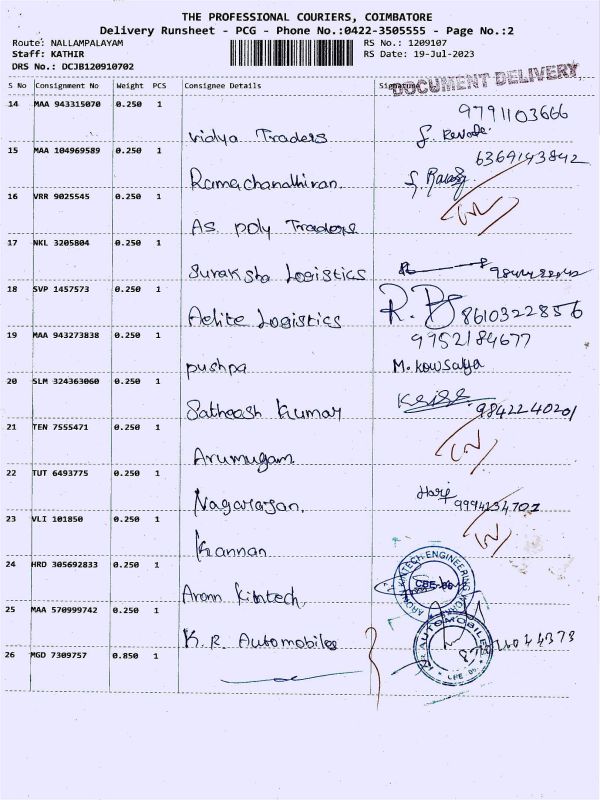 THE PROFESSIONAL COURIERS, COIMBATORE
Delivery Runsheet - PCG - Phone No.:0422-3505555 - Page No.:2
Route: NALLAMPALAYAM RS No.: 1209107
Staff: KATHIR RS Date: 19-Jul-2023
DRS No.: DCJB120910702
DOCUMENT DELIVERY
S No Consignment No Weight PCS Consignee Details Signature
14 MAA 943315070 0.250 1 9791103666
Vidya Traders
15 MAA 104969589 0.250 1 6369143842
Ramachandhiran
16 VRR 9025545 0.250 1
As. poly Traders
17 NKL 3205804 0.250 1
Suraksha Logistics
18 SVP 1457573 0.250 1
Aelite Logistics 8610322856
19 MAA 943273838 0.250 1 9752184677
pushpa M. Kowsalya
20 SLM 324363060 0.250 1
Satheash Kumar 9842240201
21 TEN 7555471 0.250 1
Arumugam
22 TUT 6493775 0.250 1 Hari
Nagarajan. 9994134702
23 VLI 101850 0.250 1
Kannan
24 HRD 305692833 0.250 1 KINTECH ENGINEERING
Aronn Kintech
25 MAA 570999742 0.250 1
K.R. Automobiles AUTOMOBILE
26 MGD 7309757 0.850 1